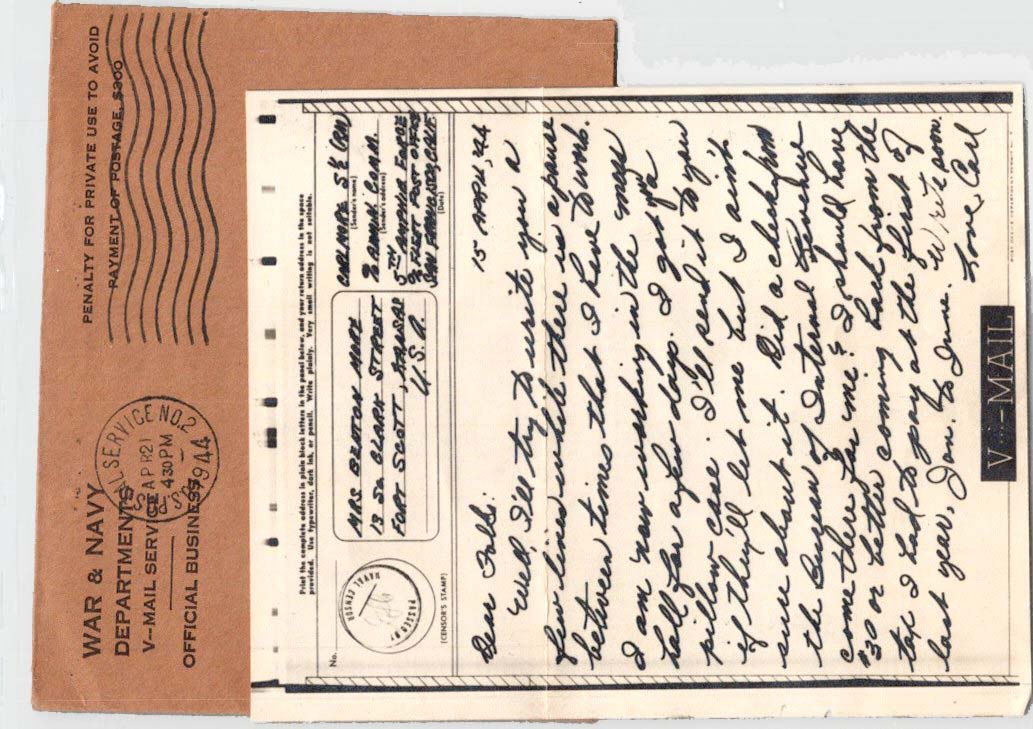 PENALTY FOR PRIVATE USE TO AVOID
PAYMENT OF POSTAGE, $300
WAR & NAVY
DEPARTMENTS
V–MAIL SERVICE
OFFICIAL BUSINESS
SERVICE NO. 2
APR 21
4 30 PM
1944
Print the complete address in plain block letters in the panel below, and your return address in the space
provided. Use typewriter, dark ink, or pencil. Write plainly. Very small writing is not suitable.
No.
PASSED BY
NAVAL CENSOR
(CENSOR'S STAMP)
MRS BENTON MOPE
13 SO CLARK STREET
FORT SCOTT, KANSAS
U.S.A.
CARL MOPE S 1/c
(Sender's name)
(Sender's address)
5TH AMPHIB FORCE
% FLEET POST OFFICE
SAN FRANCISCO, CALIF
(Date)
15 APRIL, 44
Dear Folks:
Well, I'll try to write you a
few lines while there is a pause
between times that I have to work.
I am now working in the mess
hall for a few days. I got ya
pillow case. I'll send it to you
if they'll let me but I ain't
sure about it. Did a check from
the Bureau of Internal Revenue
come there for me? I should have
$30 or better coming back from the
tax I had to pay at the first of
last year, Jan. to June. Write soon.
Love, Carl
V···–MAIL